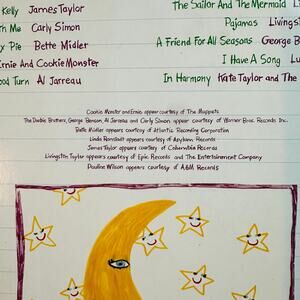 Kelly James Taylor
The Sailor And The Mermaid Li
th Me Carly Simon
Pajamas Livings
y Pie Bette Midler
A Friend For All Seasons George B
rnie And Cookie Monster
I Have A Song Lu
ood Turn Al Jarreau
In Harmony Kate Taylor and The
Cookie Monster and Ernie appear courtesy of The Muppets
The Doobie Brothers, George Benson, Al Jarreau and Carly Simon appear courtesy of Warner Bros. Records Inc.
Bette Midler appears courtesy of Atlantic Recording Corporation
Linda Ronstadt appears courtesy of Asylum Records
James Taylor appears courtesy of Columbia Records
Livingston Taylor appears courtesy of Epic Records and The Entertainment Company
Pauline Wilson appears courtesy of A&M Records